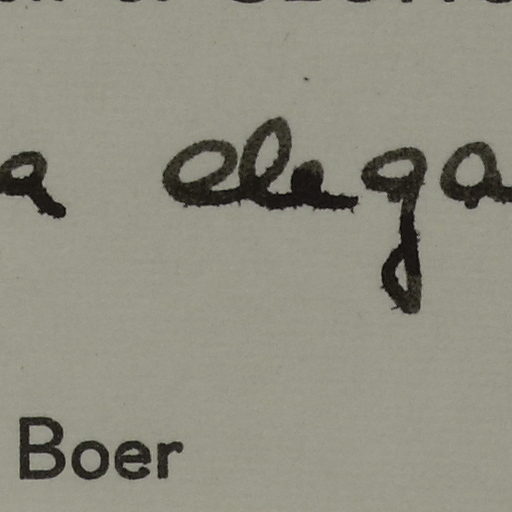 a elega
Boer